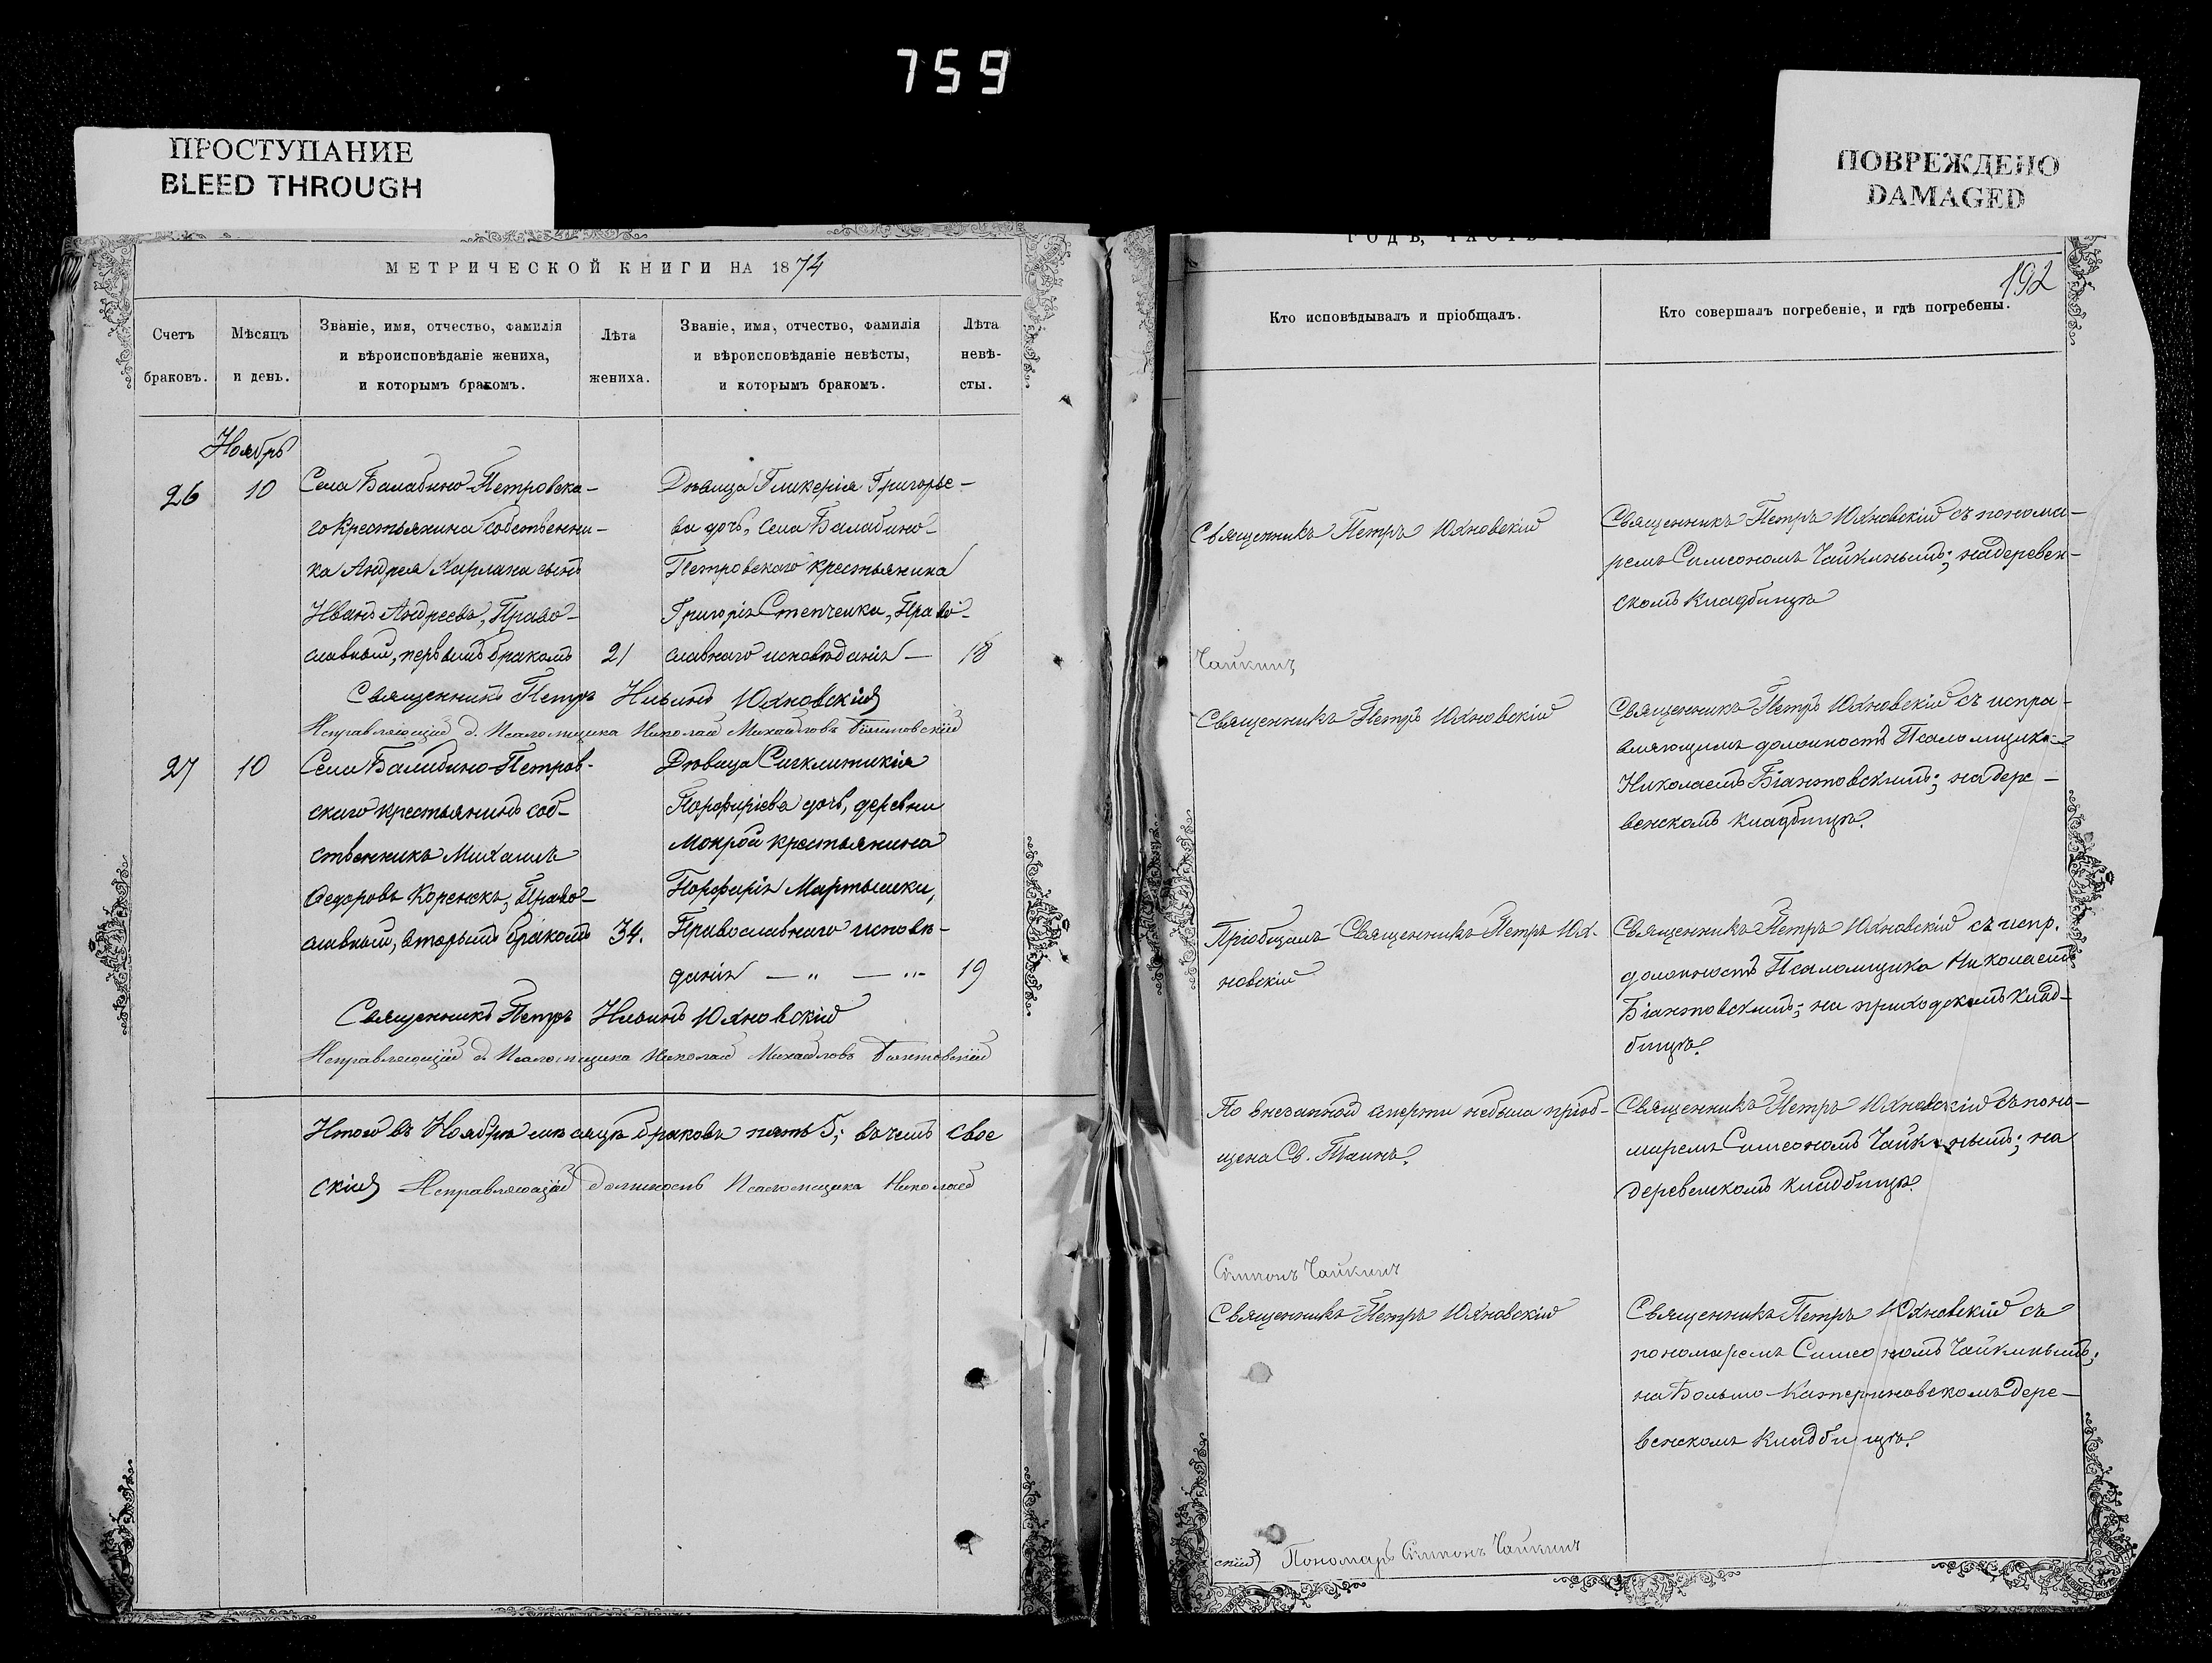 759
ПРОСТУПАНИЕ
BLEED THROUGH
ПОВРЕЖДЕНО
DAMAGED
МЕТРИЧЕСКОЙ КНИГИ НА 1874
Счетъ браковъ.
Мѣсяцъ и день.
Званіе, имя, отчество, фамилія
и вѣроисповѣданіе жениха,
и которымъ бракомъ.
Лѣта жениха.
Званіе, имя, отчество, фамилія
и вѣроисповѣданіе невѣсты,
и которымъ бракомъ.
Лѣта невѣ-
сты.
Ноябрь
26
10
Села Балабино-Петровска-
го крестьянина собственни-
ка Андрея Харлана сынъ
Иванъ Андреевъ, Право-
славный, первымъ бракомъ
21
Дѣвица Гликерія Григорье-
ва дочь, села Балабино-
Петровскаго крестьянина
Григорія Степченка, Право-
славнаго исповѣданія —
18
Священникъ Петръ Ильинъ Юхновскій
Исправляющій д. Псаломщика Николай Михайловъ Біантовскій
27
10
Села Балабино-Петров-
скаго крестьянинъ соб-
ственникъ Михаилъ
Федоровъ Коренекъ, Право-
славный, вторымъ бракомъ
34.
Дѣвица Сигклитикія
Порфиріева дочь, деревни
Мокрой крестьянина
Порфирія Мартышки,
Православнаго исповѣ-
данія — „ — „ -
19
Священникъ Петръ Ильинъ Юхновскій
Исправляющій д. Псаломщика Николай Михайловъ Біантовскій
Итого въ Ноябрѣ мѣсяцѣ браковъ пять 5; въ чемъ свое
скій Исправляющій должность Псаломщика Николай
ГОДЪ, ЧАСТЬ
192
Кто исповѣдывалъ и пріобщалъ.
Кто совершалъ погребеніе, и гдѣ погребены.
Священникъ Петръ Юхновскій
Священникъ Петръ Юхновскій съ понома-
ремъ Симеономъ Чайкинымъ; на деревен-
скомъ кладбищѣ
Чайкинъ
Священникъ Петръ Юхновскій
Священникъ Петръ Юхновскій съ испра-
вляющимъ должность Псаломщика
Николаемъ Біантовскимъ; на дере-
венскомъ кладбищѣ.
Пріобщалъ Священникъ Петръ Юх-
новскій
Священникъ Петръ Юхновскій съ испр.
должность Псаломщика Николаемъ
Біантовскимъ; на приходскомъ клад-
бищѣ.
По внезапной смерти небыла пріоб-
щена Св. Таинъ.
Священникъ Петръ Юхновскій съ поно-
маремъ Симеономъ Чайкинымъ; на
деревенскомъ кладбищѣ.
Симионъ Чайкинъ
Священникъ Петръ Юхновскій
Священникъ Петръ Юхновскій съ
пономаремъ Симеономъ Чайкинымъ;
на Больше-Катериновскомъ дере-
венскомъ кладбищѣ.
скій Пономарь Симионъ Чайкинъ